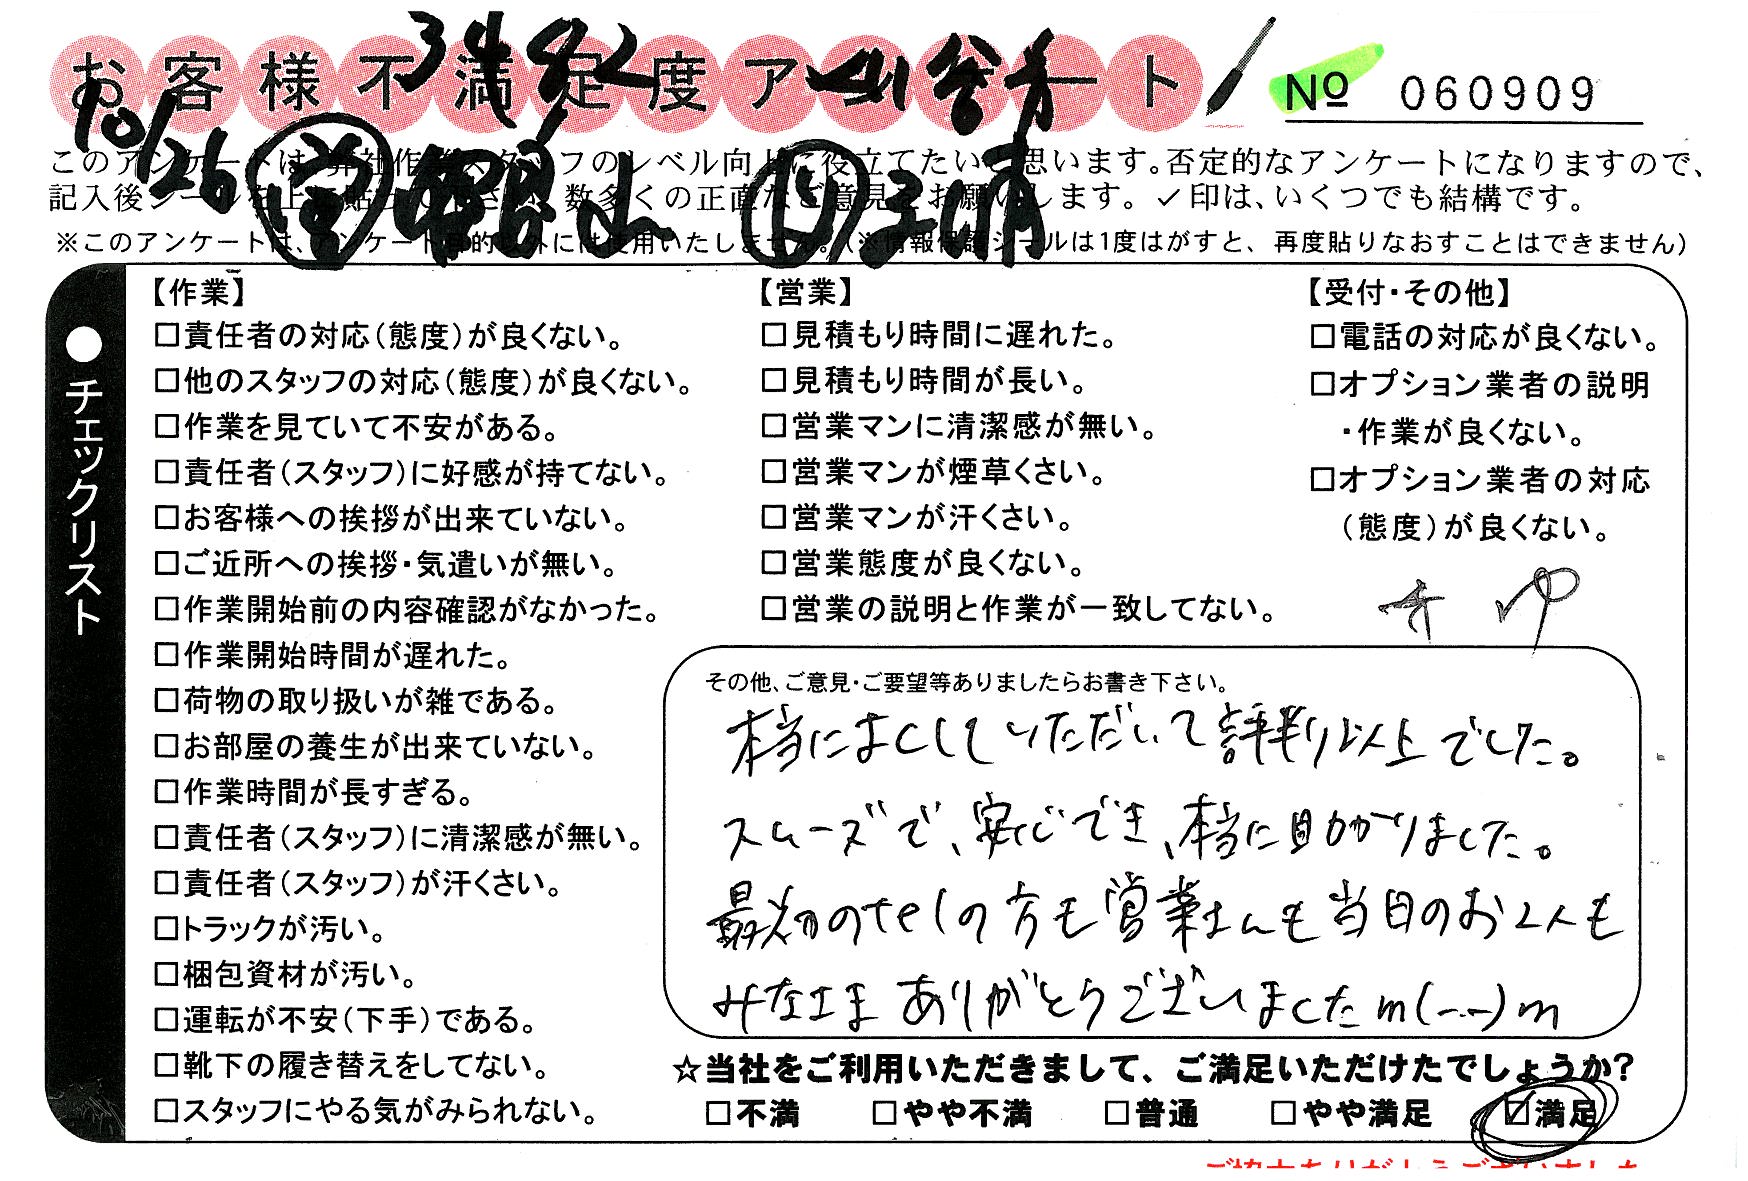 お客様不満足度アンケート
No 060909
10/26
このアンケートは、弊社作業スタッフのレベル向上に役立てたいと思います。否定的なアンケートになりますので、
記入後シールを上に貼って下さい。数多くの正直なご意見をお願いします。✓印は、いくつでも結構です。
※このアンケートは、アンケート目的以外には使用いたしません。(※情報保護シールは1度はがすと、再度貼りなおすことはできません)
●チェックリスト
【作業】
□責任者の対応(態度)が良くない。
□他のスタッフの対応(態度)が良くない。
□作業を見ていて不安がある。
□責任者(スタッフ)に好感が持てない。
□お客様への挨拶が出来ていない。
□ご近所への挨拶・気遣いが無い。
□作業開始前の内容確認がなかった。
□作業開始時間が遅れた。
□荷物の取り扱いが雑である。
□お部屋の養生が出来ていない。
□作業時間が長すぎる。
□責任者(スタッフ)に清潔感が無い。
□責任者(スタッフ)が汗くさい。
□トラックが汚い。
□梱包資材が汚い。
□運転が不安(下手)である。
□靴下の履き替えをしてない。
□スタッフにやる気がみられない。
【営業】
□見積もり時間に遅れた。
□見積もり時間が長い。
□営業マンに清潔感が無い。
□営業マンが煙草くさい。
□営業マンが汗くさい。
□営業態度が良くない。
□営業の説明と作業が一致してない。
【受付・その他】
□電話の対応が良くない。
□オプション業者の説明
・作業が良くない。
□オプション業者の対応
(態度)が良くない。
その他、ご意見・ご要望等ありましたらお書き下さい。
本当によくしていただいて評判以上でした。
スムーズで、安心でき、本当に助かりました。
最初のtelの方も営業さんも当日のお2人も
みなさま ありがとうございましたm(--)m
☆当社をご利用いただきまして、ご満足いただけたでしょうか?
□不満 □やや不満 □普通 □やや満足 ☑満足
ご協力ありがとうございました